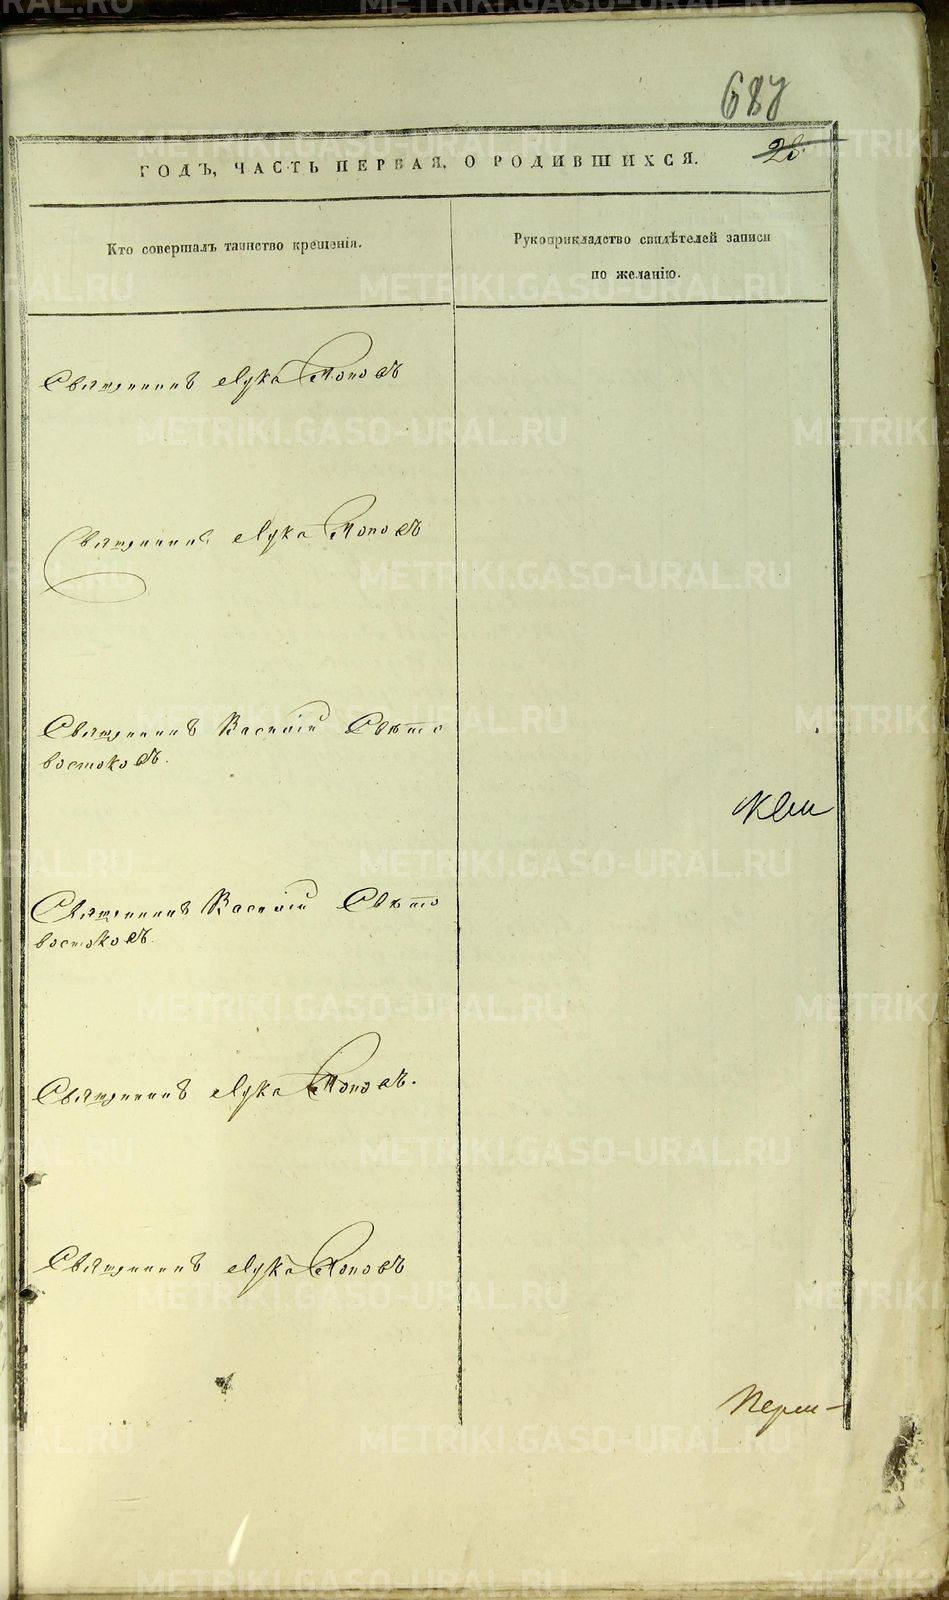 687
28
ГОДЪ, ЧАСТЬ ПЕРВАЯ, О РОДИВШИХСЯ.
Кто совершалъ таинство крещенія.
Рукоприкладство свидѣтелей записи
по желанію.
Священникъ Лука Поповъ
Священникъ Лука Поповъ
Священникъ Василій Свѣто
востоковъ.
Священникъ Василій Свѣто
востоковъ.
Священникъ Лука Поповъ.
Священникъ Лука Поповъ
Перм-
METRIKI.GASO-URAL.RU